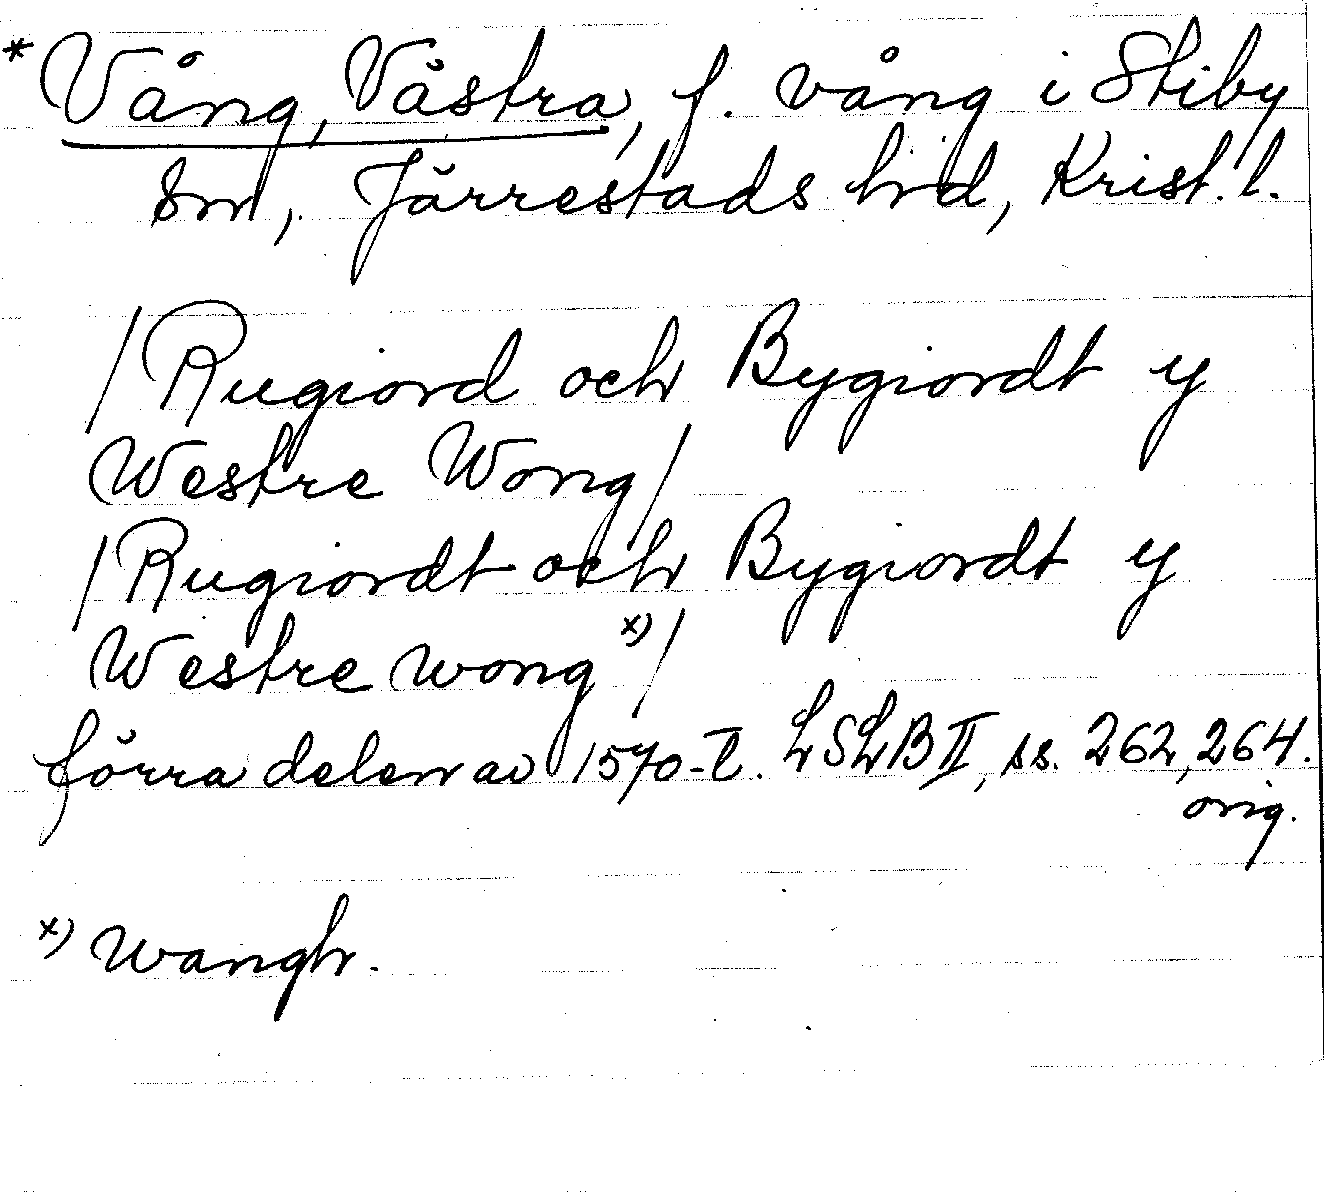 * Vång, Västra, f. vång i Stiby
sn, Järrestads hrd, Krist. l.
/Rugiord och Bygiordt y
Westre Wong/
/Rugiordt och Bygiordt y
Westre wong x)/
förra delen av 1570-t. LSLB II, ss. 262, 264.
orig.
x) wangh.